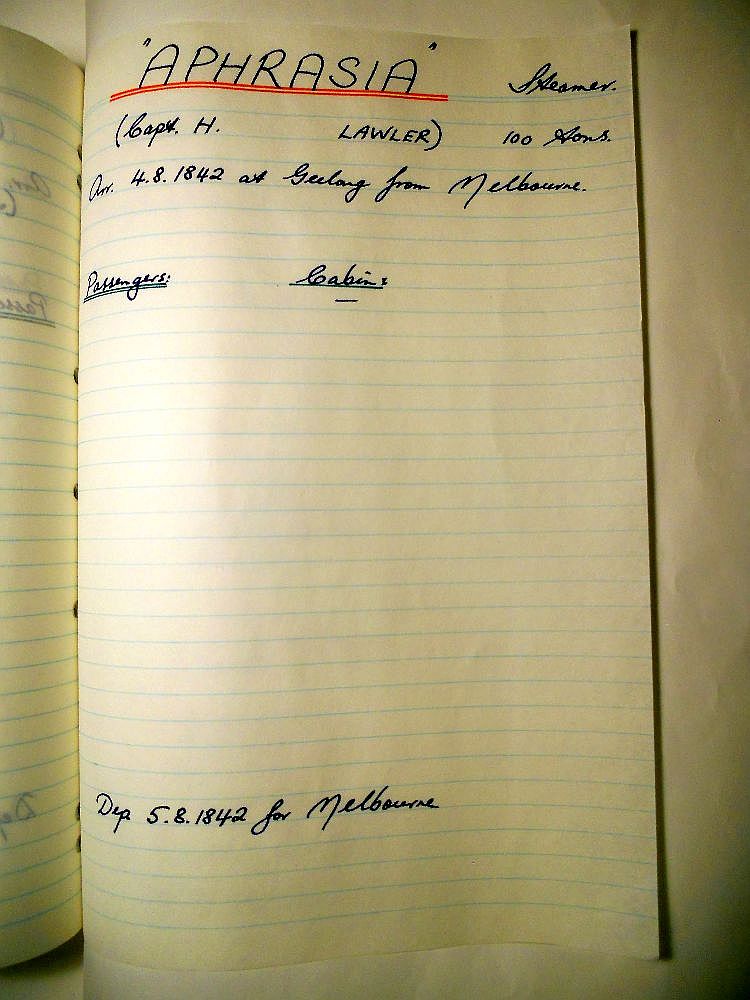 "APHRASIA" Steamer.
(Capt. H. LAWLER) 100 tons.
Arr. 4.8.1842 at Geelong from Melbourne.
Passengers: Cabin:
Dep 5.8.1842 for Melbourne